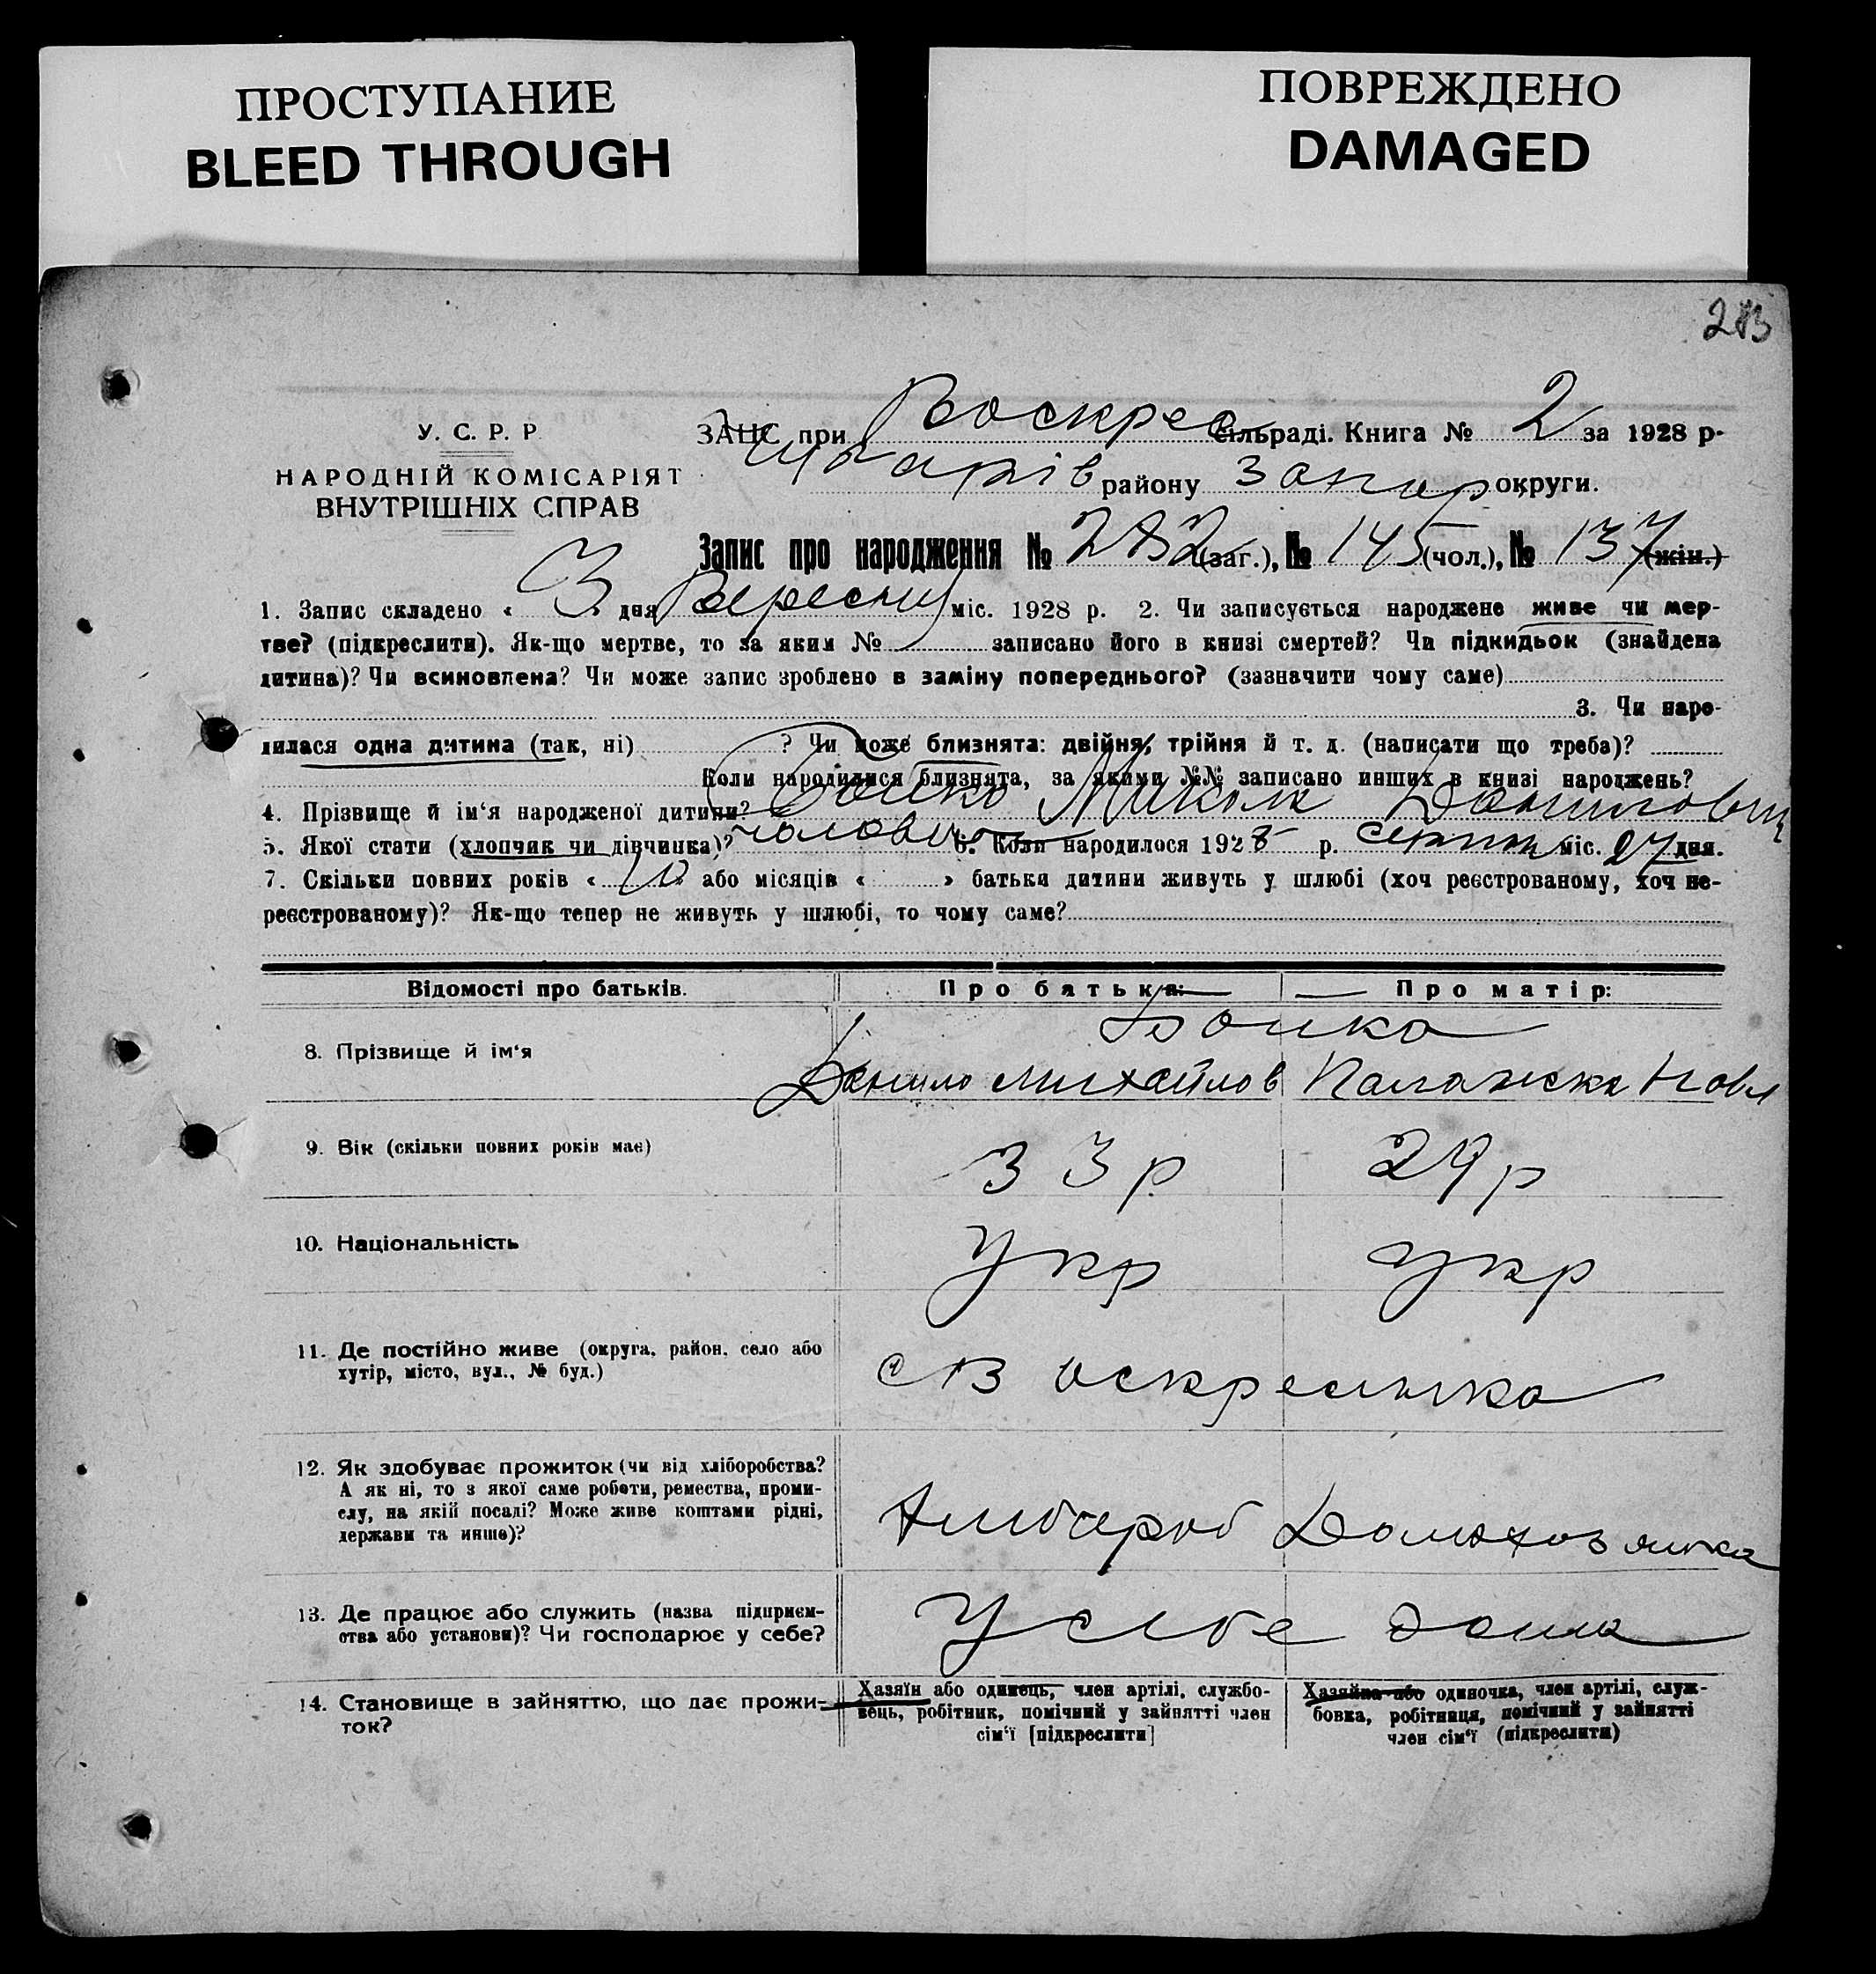 ПРОСТУПАНИЕ
BLEED THROUGH
ПОВРЕЖДЕНО
DAMAGED
У. С. Р. Р
НАРОДНІЙ КОМІСАРІЯТ
ВНУТРІШНІХ СПРАВ
ЗАЦС при Воскрес сільраді. Книга № 2 за 1928 р.
району Запор округи.
Запис про народження № 282 (заг.), № 145 (чол.), № 137 (жін.)
1. Запис складено « 3 » дня Вересня міс. 1928 р. 2. Чи записується народжене живе чи мер-
тве? (підкреслити). Як-що мертве, то за яким № записано його в книзі смертей? Чи підкидьок (знайдена
дитина)? Чи всиновлена? Чи може запис зроблено в заміну попереднього? (зазначити чому саме)
3. Чи наро-
дилася одна дитина (так, ні) ? Чи може близнята: двійня, трійня й т. д. (написати що треба)?
Коли народилися близнята, за якими №№ записано инших в книзі народжень?
4. Прізвище й ім‘я народженої дитини? Бойко Микола Данилович
5. Якої стати (хлопчик чи дівчинка)? чоловіч 6. Коли народилося 1928 р. серпня міс. 27 дня.
7. Скільки повних років « 10 » або місяців « » батьки дитини живуть у шлюбі (хоч реєстрованому, хоч не-
реєстрованому)? Як-що тепер не живуть у шлюбі, то чому саме?
Відомості про батьків. Про батька: Про матір:
8. Прізвище й ім‘я Бойко
Данило Михайлов Палажска
9. Вік (скільки повних років має) 33 р 29 р
10. Національність Укр Укр
11. Де постійно живе (округа, район, село або
хутір, місто, вул., № буд.) с Воскресенка
12. Як здобуває прожиток (чи від хліборобства?
А як ні, то з якої саме роботи, ремества, проми-
слу, на якій посаді? Може живе коштами рідні,
держави та инше)? Хлібороб Домохозяйка
13. Де працює або служить (назва підприєм-
ства або установи)? Чи господарює у себе? У себе дома
14. Становище в зайняттю, що дає прожи-
ток?
Хазяїн або одинець, член артілі, службо-
вець, робітник, помічний у зайнятті член
сім‘ї [підкреслити]
Хазяйка або одиночка, член артілі, служ-
бовка, робітниця, помічний у зайнятті
член сім‘ї (підкреслити)